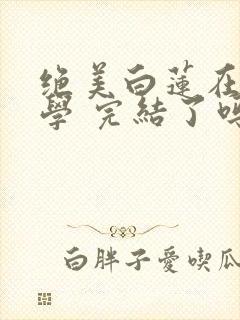 绝美白莲在
學 完結了嗎
白胖子愛喫瓜